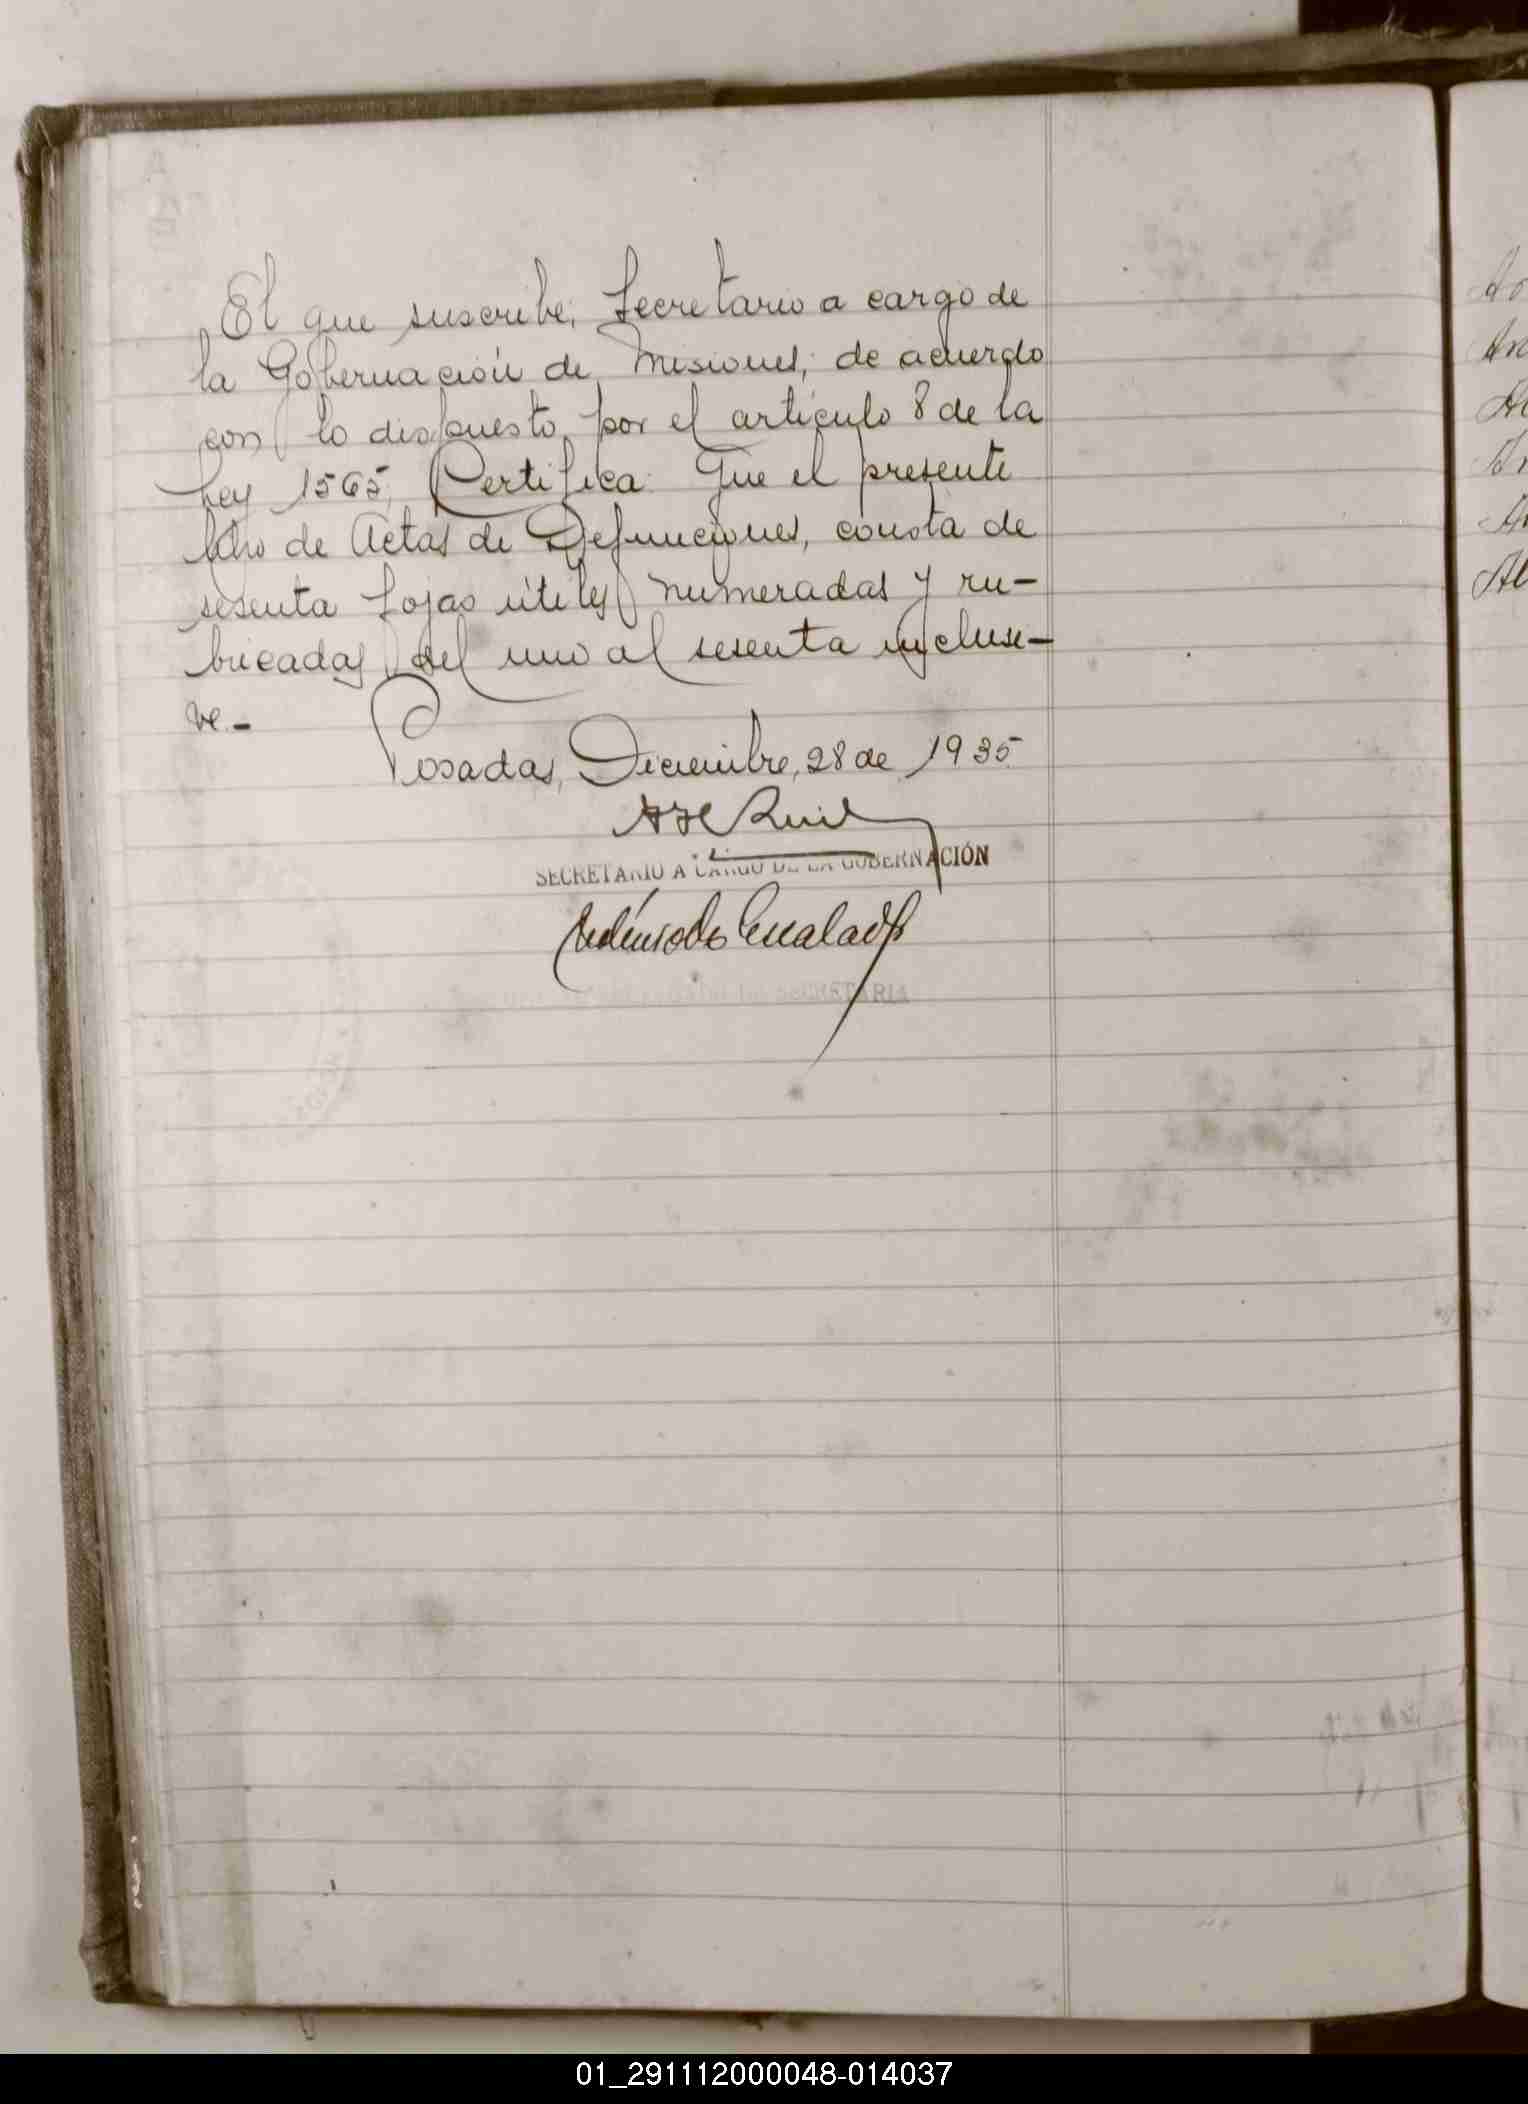 El que suscribe, Secretario a cargo de
la Gobernación de Misiones, de acuerdo
con lo dispuesto por el artículo 8 de la
Ley 1565, Certifica: Que el presente
libro de Actas de Defunciones, consta de
sesenta fojas útiles numeradas y ru-
bricadas del uno al sesenta inclusi-
ve.-
Posadas, Diciembre, 28 de 1935
SECRETARIO A CARGO DE LA GOBERNACIÓN
SECRETARIA
01_291112000048-014037